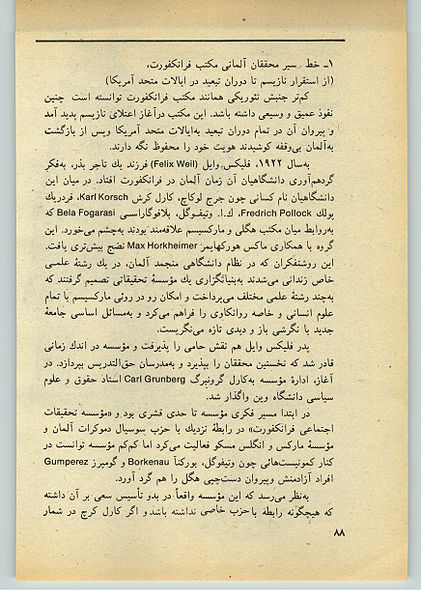 ۱ـ خط سیر محققان آلمانی مکتب فرانکفورت،
(از استقرار نازیسم تا دوران تبعید در ایالات متحد آمریکا)
کم‌تر جنبش تئوریکی همانند مکتب فرانکفورت توانسته است چنین
نفوذ عمیق و وسیعی داشته باشد. این مکتب درآغاز اعتلای نازیسم پدید آمد
و پیروان آن در تمام دوران تبعید به‌ایالات متحد آمریکا وپس از بازگشت
به‌آلمان بی‌وقفه کوشیدند هویت خود را محفوظ نگه دارند.
به‌سال ۱۹۲۲، فلیکس وایل (Felix Weil) فرزند یك تاجر بذر، به‌فکر
گردهم‌آوری دانشگاهیان آن زمان آلمان در فرانکفورت افتاد. در میان این
دانشگاهیان نام کسانی چون جرج لوکاچ، کارل کرش Karl Korsch، فردریك
پولك Fedrich Pollock، ك.ا. وتیفـوگل، بلافوگاراسـی Bela Fogarasi که
به‌روابط میان مکتب هگلی و مارکسیسم علاقه‌مند بودند به‌چشم می‌خورد. این
گروه با همکاری ماکس هورکهایمر Max Horkheimer نضج بیش‌تری یافت.
این روشنفکران که در نظام دانشگاهی منجمد آلمان، در یك رشتهٔ علمـی
خاص زندانی می‌شدند به‌بنیانگزاری یك مؤسسهٔ تحقیقاتی تصمیم گرفتند که
به‌چند رشتهٔ علمی مختلف می‌پرداخت و امکان رو در روئی مارکسیسم با تمام
علوم انسانی و خاصه روانکاوی را فراهم می‌کرد و به‌مسائل اساسی جامعهٔ
جدید با نگرشی باز و دیدی تازه می‌نگریست.
پدر فلیکس وایل هم نقش حامی را پذیرفت و مؤسسه در اندك زمانی
قادر شد که نخستین محققان را بپذیرد و به‌مدرسان حق‌التدریس بپردازد. در
آغاز، ادارهٔ مؤسسه به‌کارل گرونبرگ Carl Grunberg استاد حقوق و علوم
سیاسی دانشگاه وین واگذار شد.
در ابتدا مسیر فکری مؤسسه تا حدی قشری بود و «مؤسسه تحقیقات
اجتماعی فرانکفورت» در رابطهٔ نزدیك با حزب سوسیال دموکرات آلمان و
مؤسسهٔ مارکس و انگلس مسکو فعالیت می‌کرد اما کم‌کم مؤسسه توانست در
کنار کمونیست‌هائی چون وتیفوگل، بورکنا Borkenau و گومپرز Gumperez
افراد آزادمنش وپیروان دست‌چپی هگل را هم گرد آورد.
به‌نظر می‌رسد که این مؤسسه واقعاً در بدو تأسیس سعی بر آن داشته
که هیچگونه رابطهٔ با حزب خاصی نداشته باشد و اگر کارل کرچ در شمار
۸۸